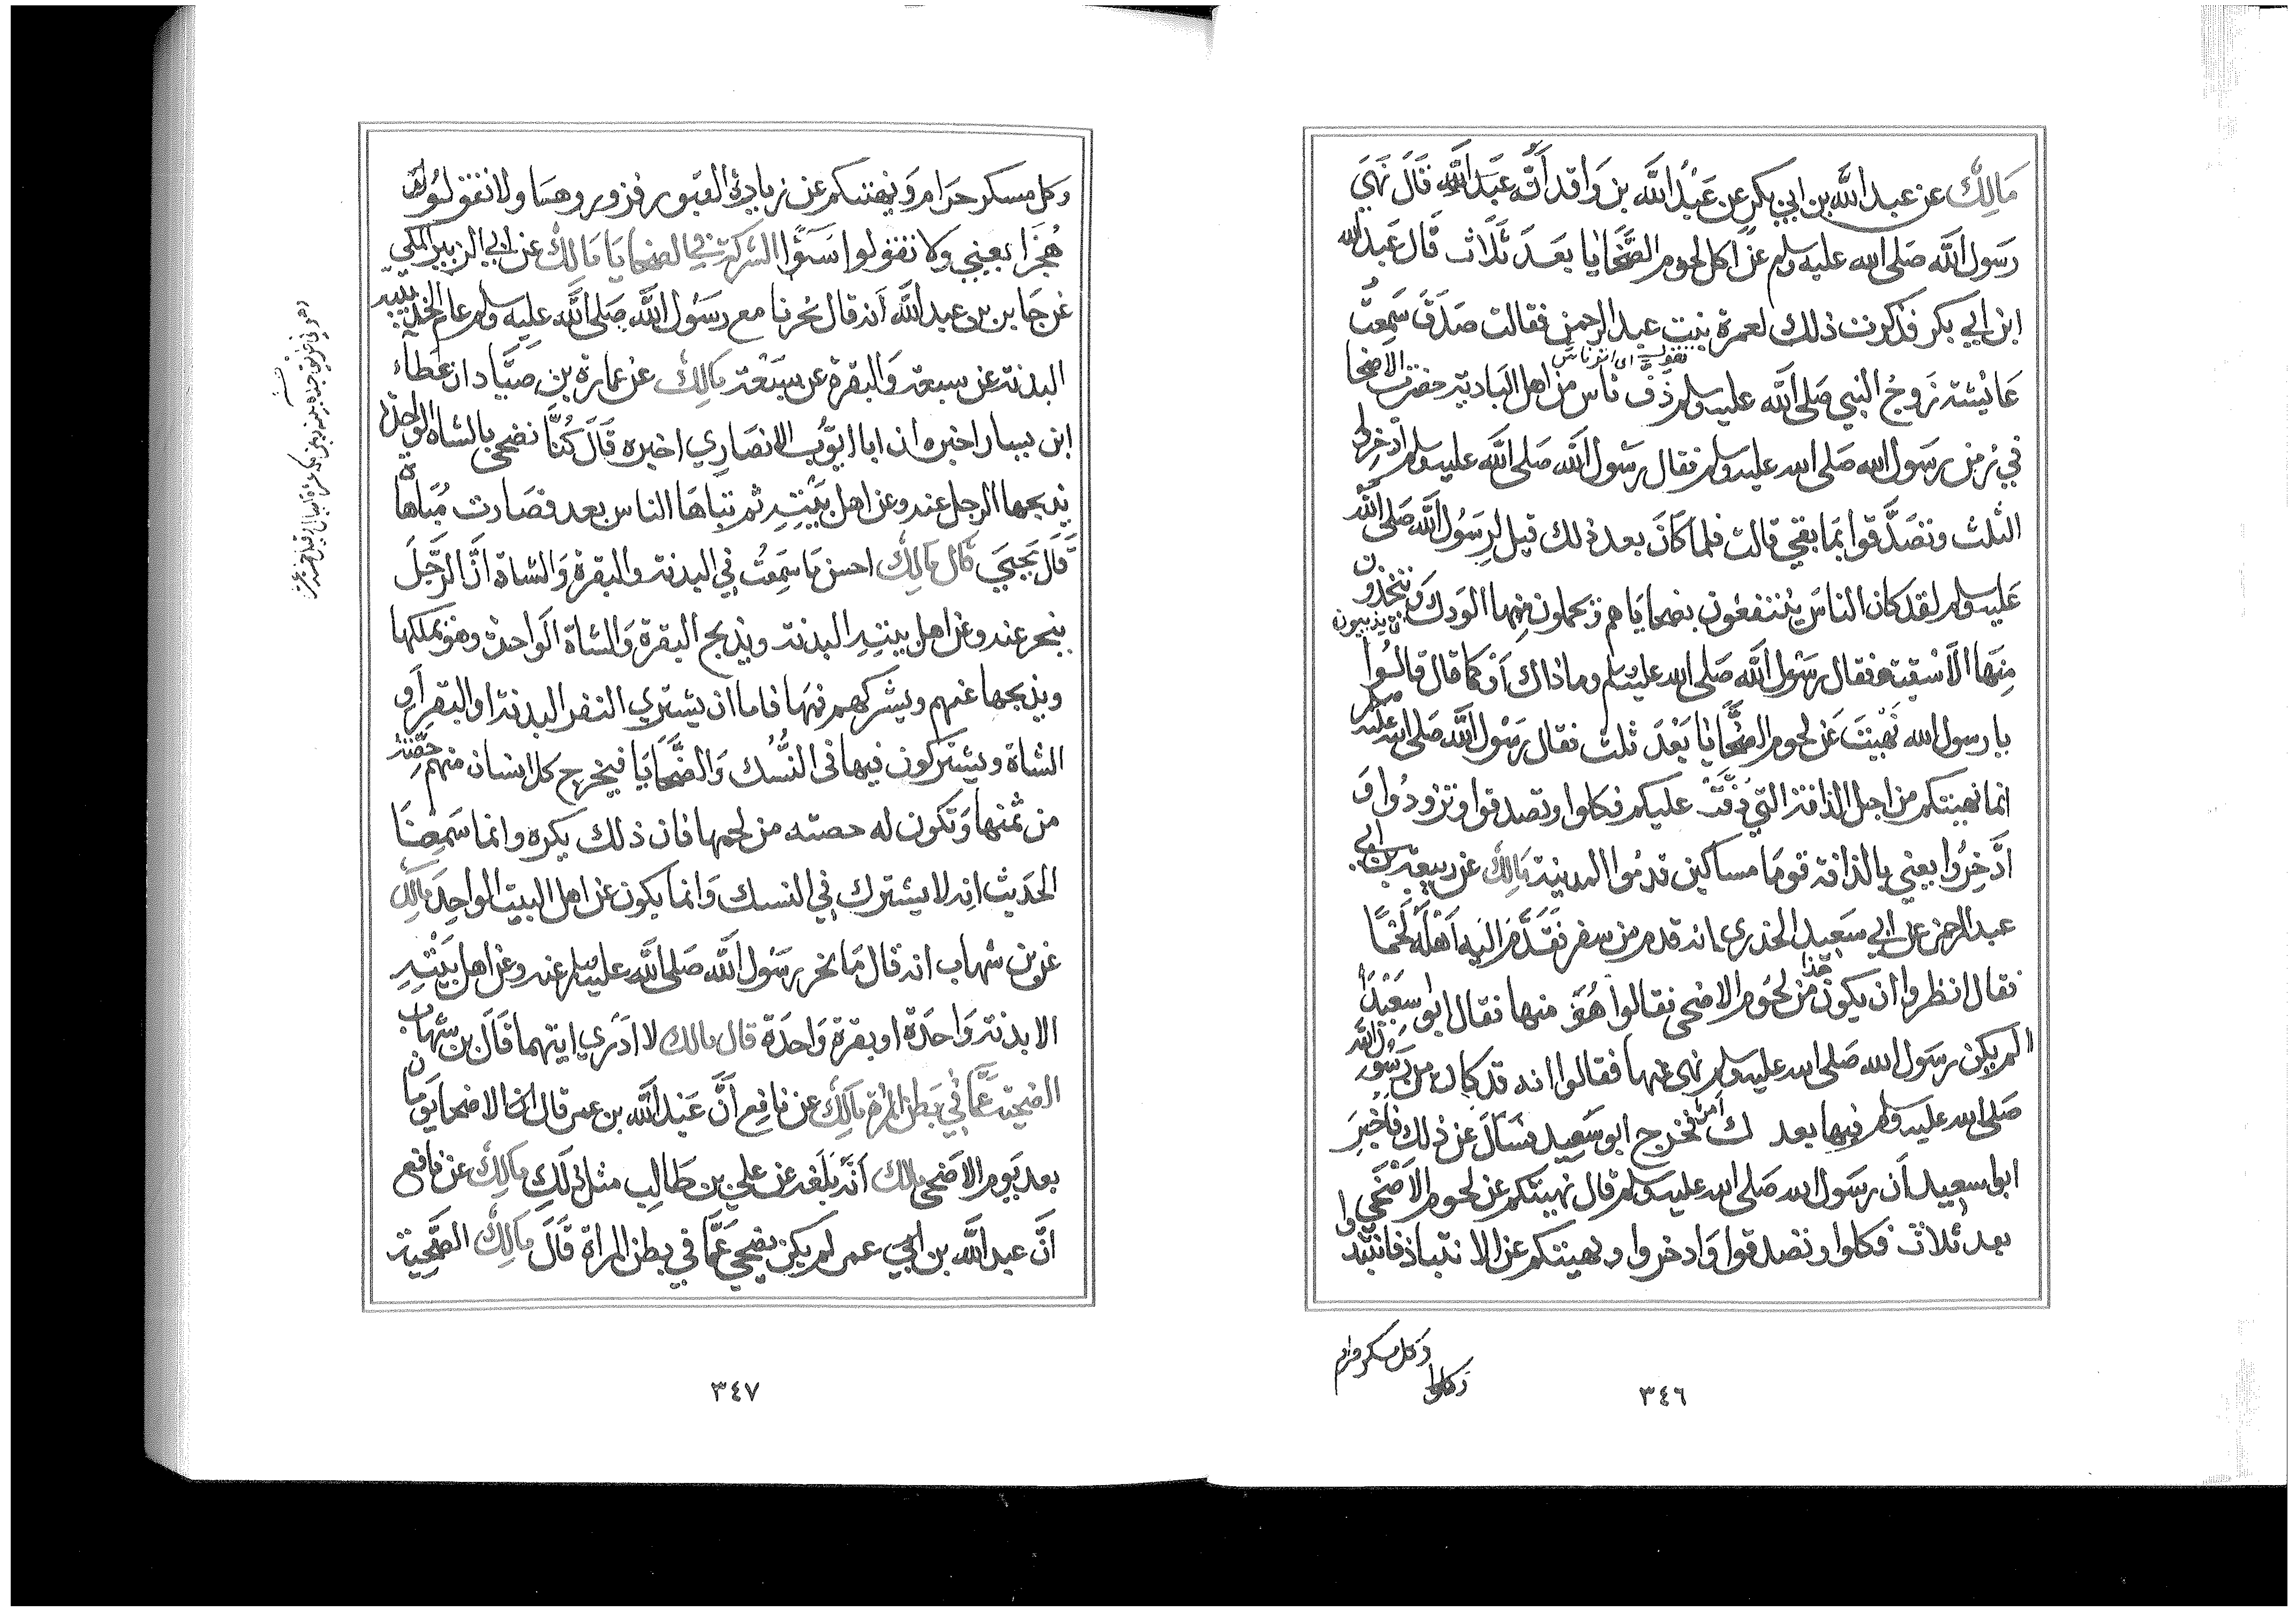 مَالِكٌ عن عبد الله بن ابي بكر عن عَبْدُ الله بن وَاقد اَنّه عَبْدَ الله قَالَ نَهَى
رَسول الله صَلى الله عليه وسلم عن اكل لحوم الضَّحَايا بَعَدَ ثَلَاث قَال عَبد الله
ابن ابي بكر فذكرت ذلك لعمرة بنت عبد الرحمن فقالت صَدَقَ سَمِعتُ
عَائِشَة زَوجُ النبي صَلى الله عليه وسلم تقول دَفَّ نَاس من اهل البَادية حضرت الاضحا
في زمن رسول الله صَلى الله عليه وسلم فقال رسول الله صَلى الله عليه وسلم ادّخِرُوا
الثلث وتصَدَّقوا بمَا بقي قالت فلما كَانَ بعد ذلك قيل لِرَسُول الله صَلى الله
عَليه وسلم لقد كان الناسَ يَنْتفعُون بضحايَاهم ويحملون منها الوَدك وَيتخذون
مِنهَا الاَسْقية فقال رَسُول الله صَلى الله عليه وسلم وما ذاك اَوْ كما قال قالُوا
يا رسول الله نَهيتَ عَن لحوم الضَّحَايَا بَعْدَ ثلث فقال رَسُول الله صَلى الله عليه وسلم
انما نهيتكم من اجل الدافة التي دَفّتْ عليكم فكلوا وتصدقوا وتزودُوا وَ
ادَّخِرُوا يعني بالدافة قومَا مساكين قدمُوا المدينة مَالِكٌ عن ربيعة بن ابي
عبد الرحمن عن ابي سَعيد الخدري انه قدم من سفر فقَدَّمَ اليه اَهْلهُ لَحْمًا
فقال انظروا ان يكون هَذا من لحُوم الاضحى فقالوا هُوَ منها فقال ابو سَعِيْد
الم يكن رسَول الله صَلى الله عليه وسلم نهى عنها فقالوا انه قد كان من رَسُول الله
صَلى الله عليه وسلم فيها بعدك امر فخرج ابو سَعيد فسَاَلَ عن ذلك فاُخبِرَ
ابو سعيد اَن رسَول الله صَلى الله عليه وسلم قال نهيتكم عن لحوم الاَضْحَى
بعد ثلاث فكلوا وتصدقوا وَادخروا ونهيتكم عن الانتباذ فانتبذوا
وكل مسكر حرام
٣٤٦
وكل مسكر حرَام وَنهيتكم عن زيادة القبور فزوروهَا ولا تقولوا
هُجْرًا يعني ولا تقولوا سَوْءًا الشركة في الضحايَا مَالِكٌ عن ابي الزبير المكي
عن جَابر بن عبد الله اَنه قال نحرنا مع رَسُول الله صَلى الله عليه وسلم عام الحديبية
البدنة عن سبعة وَالبقرة عن سبْعة مَالِكٌ عن عمارة بن صيَّاد ان عَطاء
ابن يسار اخبره ان ابا ايّوُب الانصَارِي اخبره قَالَ كُنَّا نضحي بالشاة الواحِدة
يذبحها الرجل عنه وعن اهل بَيْتِهِ ثم تبَاهَا الناس بعد فصَارت مُبَاهَاة
قَالَ يَحْيَى قَال مَالِك احسن مَا سَمِعتُ في البدنة والبقرة وَالشاة اَنَّ الرَّجُلَ
ينحر عنه وعن اهل بيتِهِ البدنة ويذبح البقرة وَالشاة الوَاحدة وهوَ يملكها
ويذبحها عنهم ويشركهم فيهَا فاما ان يشتري النفر البدنة او البقر اَو
الشاة ويشتركون فيها في النُّسُك وَالضَّحَايَا فيخرج كل انسان منهم حِصّته
من ثمنها وَتكون له حصته من لحمها فان ذلك يكره وانما سَمِعْنَا
الحَديث انه لا يشترك في النسك وَانما يكون عن اهل البيت الواحِد مَالِكٌ
عن بن شهاب انه قال مَا نحر رسُول الله صَلى الله عليه وسلم عنه وعن اهل بَيْتِهِ
الا بدنة وَاحدَة او بقرة وَاحدَة قال مالك لا ادْري ايتهما قَالَ بن شهاب
الضحية عَمَّا في بَطن المرْاة مَالِكٌ عن نافِع اَنَّ عَبْد الله بن عمر قال الاضحا يَومان
بعد يَوم الاَضْحَى مَالك اَنّه بَلغه عن علي بن طَالِب مثل ذلَكِ مَالِكٌ عن نافع
اَنّ عبد الله بن ابي عمر لم يكن يضحي عَمَّا في بطن المراة قَالَ مَالِكٌ الضَّحِية
٣٤٧